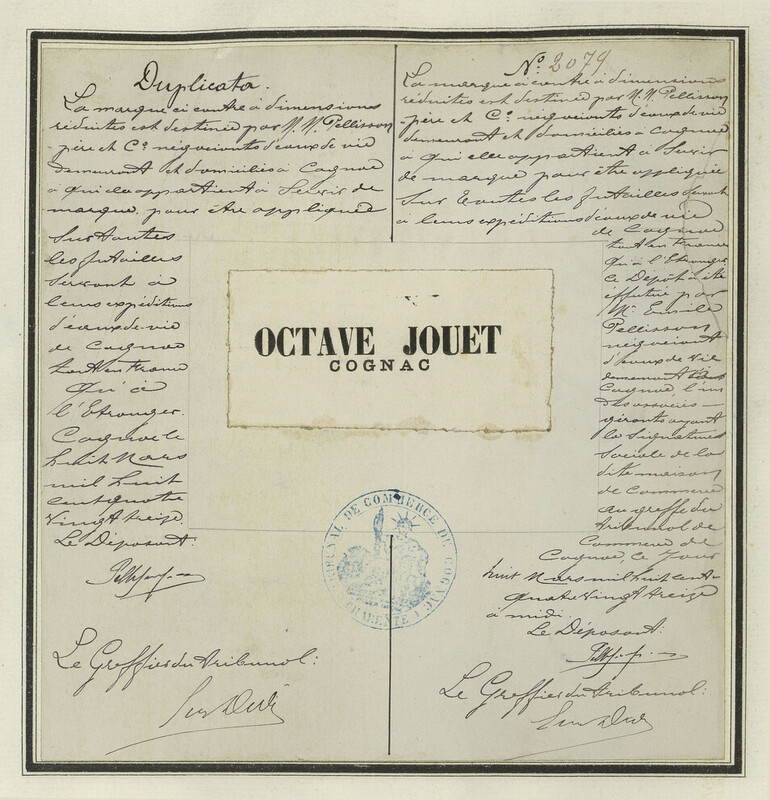 Duplicata.
La marque ci contre à dimensions
réduites est destinée par M.M. Pellisson
père et Cº négociants d'eaux de vie
demeurant et domiciliés à Cognac
à qui elle appartient à Servir de
marque pour être appliquée
Sur toutes
les futailles
Servant à
leurs expéditions
d'eaux-de-vie
de Cognac
tant en France
qu'à
l'Etranger.
Cognac le
huit Mars
mil huit
cent quatre
vingt treize
Le Déposant:
Le Greffier du tribunal:
Nº 2079
La marque ci contre à dimensions
réduites est destinée par M.M. Pellisson
père et Cº négociants d'eaux de vie
demeurant et domiciliés à Cognac
à qui elle appartient à Servir
de marque pour être appliquée
Sur toutes les futailles Servant
à leurs expéditions d'eaux de vie
de Cognac
tant en France
qu'à l'Etranger
Le Dépôt a été
effectué par
Mr Emile
Pellisson
négociant
d'eaux de vie
demeurant à
Cognac l'un
des associés
gérants ayant
la Signature
Sociale de la
dite maison
de Commerce
au greffe du
tribunal de
Commerce de
Cognac, ce Jour
huit Mars mil huit cent
quatre vingt treize
à midi.
Le Déposant:
Le Greffier du tribunal:
OCTAVE JOUET
COGNAC
TRIBUNAL DE COMMERCE DE COGNAC
CHARENTE